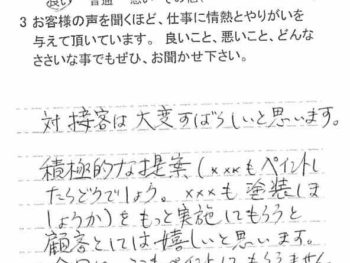 良い 普通 悪い その他
3 お客様の声を聞くほど、仕事に情熱とやりがいを
与えて頂いています。良いこと、悪いこと、どんな
ささいな事でもぜひ、お聞かせ下さい。
対接客は大変すばらしいと思います。
積極的な提案(×××もペイントし
たらどうでしょう。×××も塗装しま
しょうか)をもっと実施してもらうと
顧客としては嬉しいと思います。